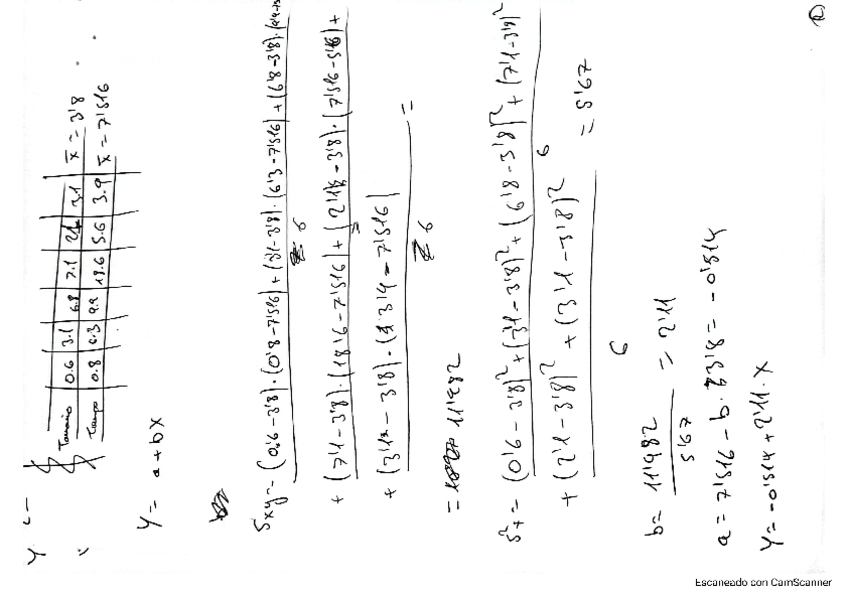 Y
Tamaño 0.6 3.1 6.8 7.1 3.1 x̄ = 3'8
Tiempo 0.8 6.3 9.9 18.6 5.6 3.9 x̄ = 7'516
Y = a+bx
Sxy = (0'6-3'8)·(0'8-7'516)+(3'1-3'8)·(6'3-7'516)+(6'8-3'8)·
6
+(7'1-3'8)·(18'6-7'516)+(2'1-3'8)·
+(3'1-3'8)·(3'9-7'516) =
6
= 11'982
S²x = (0'6-3'8)²+(3'1-3'8)²+(6'8-3'8)²+(7'1-3'8)²
6
+(2'1-3'8)²+(3'1-3'8)² = 5'67
6
b = 11'982 = 2'11
5'67
a = 7'516 - b·3'8 = -0'514
Y = -0'514+2'11·x
Escaneado con CamScanner